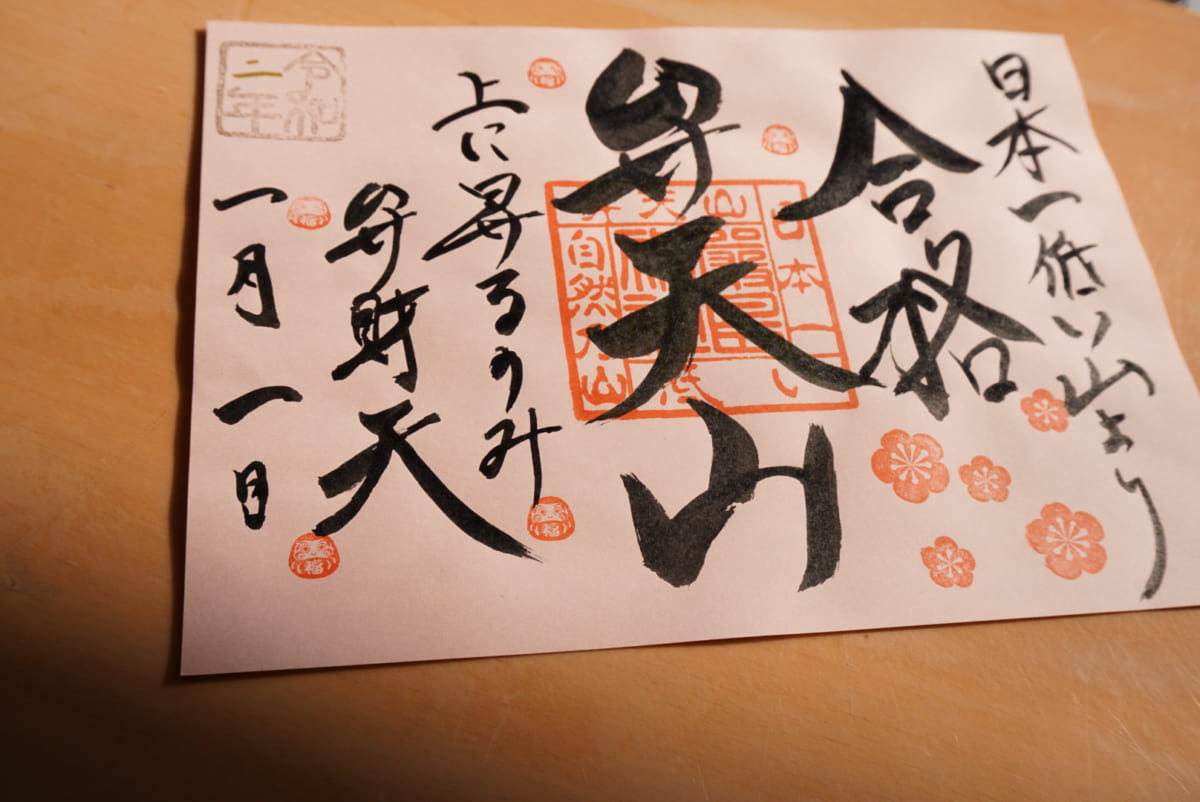 日本一低い山より
合格
弁天山
上に昇るのみ
弁財天
一月一日
令和
二年
日本一
自然の山
福
福